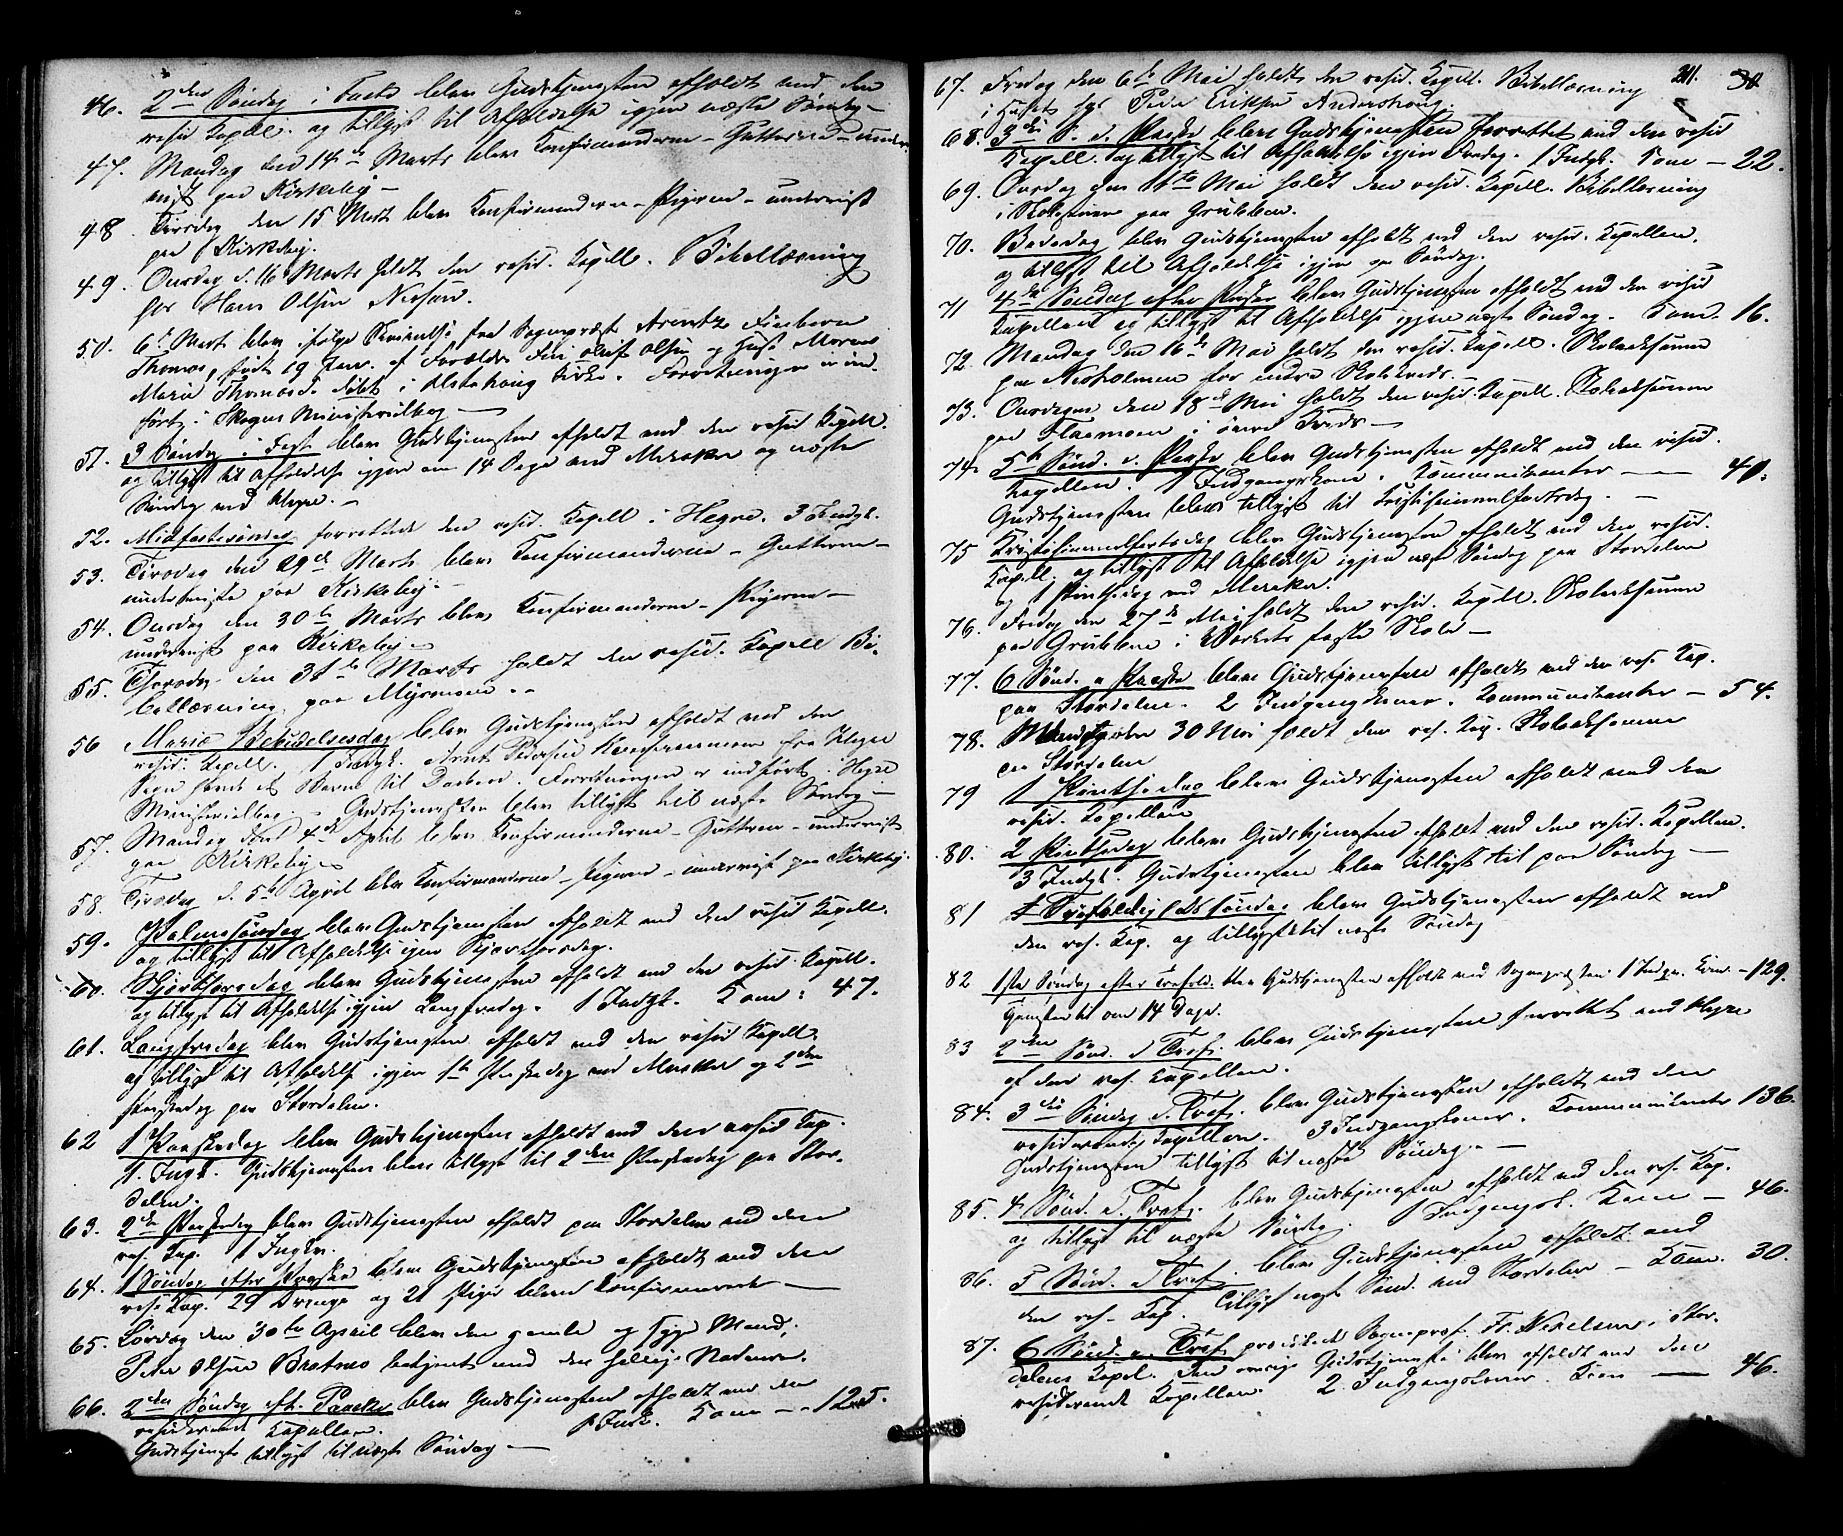 46. 2den Søndag i Faste blev Gudstjenesten afholdt ved den
resid Capell. og tillyst til Afholdelse igjen næste Søndag –
47. Mandag den 14de Marts blev Konfirmanderne – Gutterne – under-
vist paa Kirkeby –
48. Tirsdag den 15 Marts blev Konfirmanderne – Pigerne – undervist
paa Kirkeby.
49. Onsdag d. 16 Marts holdt den resid. Capell. Bibellæsning
hos Hans Olsen
50. 6te Marts blev ifølge fra Sognepræst Arentz
Thomas, født 19 Janr. af Forældre Olsen og Hust.
Maria Thomasd. døbt i Alstahoug Kirke. Forretningen er ind-
ført i Skogns Ministerialbog –
51. 3 Søndag i Faste blev Gudstjenesten afholdt ved den resid Capell.
og tillyst til Afholdelse igjen om 14 Dage ved Meraker og næste
Søndag ved Hegre. –
52. Midfastesøndag forrettede den resid. Capell i Hegre. 3 Indgk.
53. Tirsdag den 29de Marts blev Konfirmanderne – Gutterne –
underviste paa Kirkeby –
54. Onsdag den 30te Marts blev Konfirmanderne – Pigerne –
undervist paa Kirkeby –
55. Thorsdag den 31te Marts holdt den resid. Capell Bi-
bellæsning paa Myrmoen –
56 Mariæ Bebudelsesdag blev Gudstjenesten afholdt ved den
resid. Capell. 1 Indgk. Arnt Pedersen fra Hegre
Sogn havde et Barn til Daaben. Forretningen er indført i Hegre
Ministerialbog – Gudstjenesten blev tillyst til næste Søndag –
57. Mandag den 4de April blev Konfirmanderne – Gutterne – undervist
paa Kirkeby –
58. Tirsdag d. 5te April blev Konfirmanderne – Pigerne – undervist paa Kirkeby.
59. Palmesøndag blev Gudstjenesten afholdt ved den resid Capell.
og tillyst til Afholdelse igjen Skjærthorsdag.
60. Skjærthorsdag blev Gudstjenesten afholdt ved den resid. Capell.
og tillyst til Afholdelse igjen Langfredag. 1 Indgk. Kom: 47.
61. Langfredag blev Gudstjenesten afholdt ved den resid Capell.
og tillyst til Afholdelse igjen 1ste Paaskedag ved Meraker og 2den
Paaskedag paa Stordalen.
62 1 Paaskedag blev Gudstjenesten afholdt ved den resid Cap.
1. Ingk. Gudstjenesten blev tillyst til 2den Paaskedag paa Stor-
dalen.
63. 2den Paaskedag blev Gudstjenesten afholdt paa Stordalen ved den
res. Cap. 1 Ingk.
64. 1 Søndag efter Paaske blev Gudstjenesten afholdt ved den
res. Cap. 29 Drenge og 21 Piger bleve konfirmerede –
65. Lørdag den 30te April blev den gamle og syge Mand,
Peter Olsen Bratnæs betjent med den hellige Nadvere.
66. 2den Søndag eft. Paaske blev Gudstjenesten afholdt ved den
residerende Capellan. 1 Indk. Kom – 125.
Gudstjenesten tillyst til næste Søndag –
211.
67. Fredag den 6te Mai holdt den resid. Capell. Bibellæsning
i Huset hos Peder Eriksen Andershoug.
68. 3die S. e. Paaske blev Gudstjenesten forrettet ved den resid
Capell. og tillyst til Afholdelse igjen Bededag. 1 Indgk. Kom – 22.
69. Onsdag den 11te Mai holdt den resid. Capell. Bibellæsning
i Skolestuen paa Grubben.
70. Bededag blev Gudstjenesten afholdt ved den resid. Capellan,
og tillyst til Afholdelse igjen paa Søndag.
71 4de Søndag efter Paaske blev Gudstjenesten afholdt ved den resid
Capellan og tillyst til Afholdelse igjen næste Søndag. Kom. 16.
72. Mandag den 16de Mai holdt den resid. Capell. Skoleeksamen
paa for indre Skolekreds.
73. Onsdagen den 18de Mai holdt den resid. Capell. Skoleeksamen
paa Flaamoen i øvre Kreds –
74. 5te Sønd. e. Paaske blev Gudstjenesten afholdt ved den resid.
Capellan. 1 Indgangskone. Kommunikanter – 40.
Gudstjenesten blev tillyst til Kristihimmelfartsdag. –
75 Kristihimmelfartsdag blev Gudstjenesten afholdt ved den resid.
Capell. og tillyst til Afholdelse igjen næste Søndag paa Stordalen
og 1 Pintsedag ved Meraker.
76. Fredag den 27de Mai holdt den resid. Capell. Skoleeksamen
paa Grubben i Værkets faste Skole –
77. 6 Sønd. e Paaske blev Gudstjenesten afholdt ved den res. Cap.
paa Stordalen. 2 Indgangskoner. Kommunikanter – 54.
78. Mandag den 30 Mai holdt den res. Cap. Skoleeksamen
paa Stordalen
79 1 Pintsedag blev Gudstjenesten afholdt ved den
resid. Capellan
80. 2 Pintsedag blev Gudstjenesten afholdt ved den resid. Capellan.
3 Indgk. Gudstjenesten blev tillyst til paa Søndag –
81 Trefoldighedssøndag blev Gudstjenesten afholdt ved
den res. Cap. og tillyst til næste Søndag
82 1ste Søndag efter Trefold. blev Gudstjenesten afholdt ved Sognepræsten. 1 Indgk. Kom. – 129.
Tjeneste om 14 Dage.
83 2den Sønd. e Tref. blev Gudstjenesten forrettet ved Hegre
af den res. Capellan.
84. 3die Søndag e. Tref. blev Gudstjenesten afholdt ved den
residerende Capellan. 3 Indgangskoner. Kommunikanter 136.
Gudstjenesten tillyst til næste Søndag. –
85. 4. Sønd. e. Tref. blev Gudstjenesten afholdt ved den res. Cap.
og tillyst til næste Søndag. 1 Indgangsk. Kom – 46.
86. 5 Sønd. e Tref. blev Gudstjenesten afholdt ved
den res. Cap. Tillyst næste Sønd. ved Stordalen – Kom. 30.
87. 6 Sønd. e. Tref. prædikede Sognepræst Fr. Nikelsen i Stor-
dalens Capel. Den øvrige Gudstjeneste blev afholdt ved den
residerende Capellan. 2. Indgangskoner. Kom – 46.